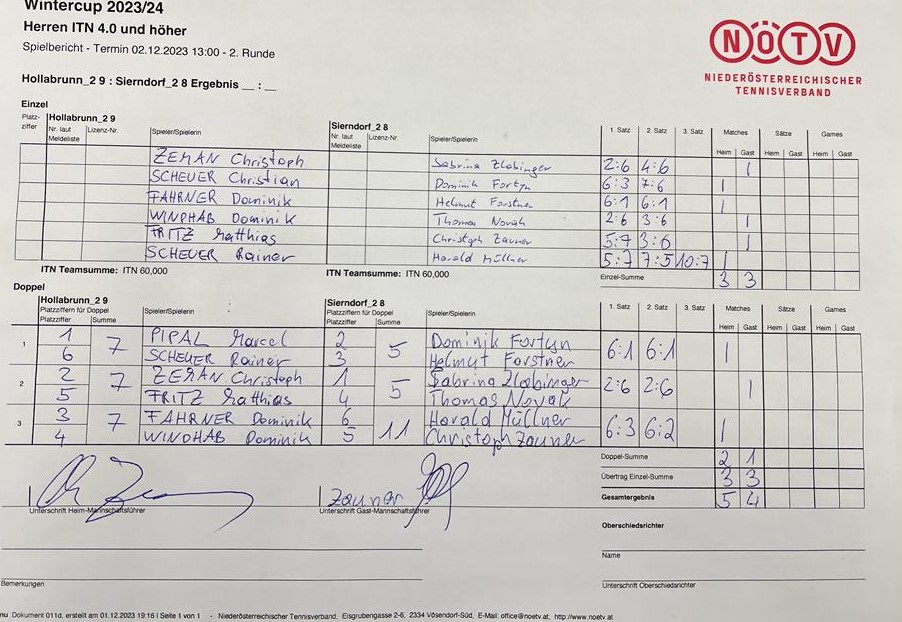 Wintercup 2023/24
Herren ITN 4.0 und höher
Spielbericht - Termin 02.12.2023 13:00 - 2. Runde
NÖTV
NIEDERÖSTERREICHISCHER
TENNISVERBAND
Hollabrunn_2 9 : Sierndorf_2 8 Ergebnis __ : __
Einzel
Platz-ziffer Hollabrunn_2 9 Nr. laut Meldeliste Lizenz-Nr. Spieler/Spielerin Sierndorf_2 8 Nr. laut Meldeliste Lizenz-Nr. Spieler/Spielerin 1. Satz 2. Satz 3. Satz Matches Sätze Games
Heim Gast Heim Gast Heim Gast
ZEMAN Christoph Sabrina Zlabinger 2:6 4:6 1
SCHEUER Christian Dominik Fortyn 6:3 7:6 1
FAHRNER Dominik Helmut Forstner 6:1 6:1 1
WINDHAB Dominik Thomas Novak 2:6 3:6 1
FRITZ Matthias Christoph Zauner 5:7 3:6 1
SCHEUER Rainer Harald Müllner 5:7 7:5 10:7 1
ITN Teamsumme: ITN 60,000 ITN Teamsumme: ITN 60,000 Einzel-Summe 3 3
Doppel
Hollabrunn_2 9 Sierndorf_2 8
Platzziffern für Doppel Spieler/Spielerin Platzziffern für Doppel Spieler/Spielerin 1. Satz 2. Satz 3. Satz Matches Sätze Games
Platzziffer Summe Platzziffer Summe Heim Gast Heim Gast Heim Gast
1 1 7 PIPAL Marcel 2 5 Dominik Fortyn 6:1 6:1 1
6 SCHEUER Rainer 3 Helmut Forstner
2 2 7 ZEMAN Christoph 1 5 Sabrina Zlabinger 2:6 2:6 1
5 FRITZ Matthias 4 Thomas Novak
3 3 7 FAHRNER Dominik 6 11 Harald Müllner 6:3 6:2 1
4 WINDHAB Dominik 5 Christoph Zauner
Doppel-Summe 2 1
Übertrag Einzel-Summe 3 3
Gesamtergebnis 5 4
Zauner
Unterschrift Heim-Mannschaftsführer Unterschrift Gast-Mannschaftsführer
Oberschiedsrichter
Name
Bemerkungen Unterschrift Oberschiedsrichter
nu Dokument 011d, erstellt am 01.12.2023 19:16 | Seite 1 von 1 - Niederösterreichischer Tennisverband, Eisgrubengasse 2-6, 2334 Vösendorf-Süd, E-Mail: office@noetv.at, http://www.noetv.at